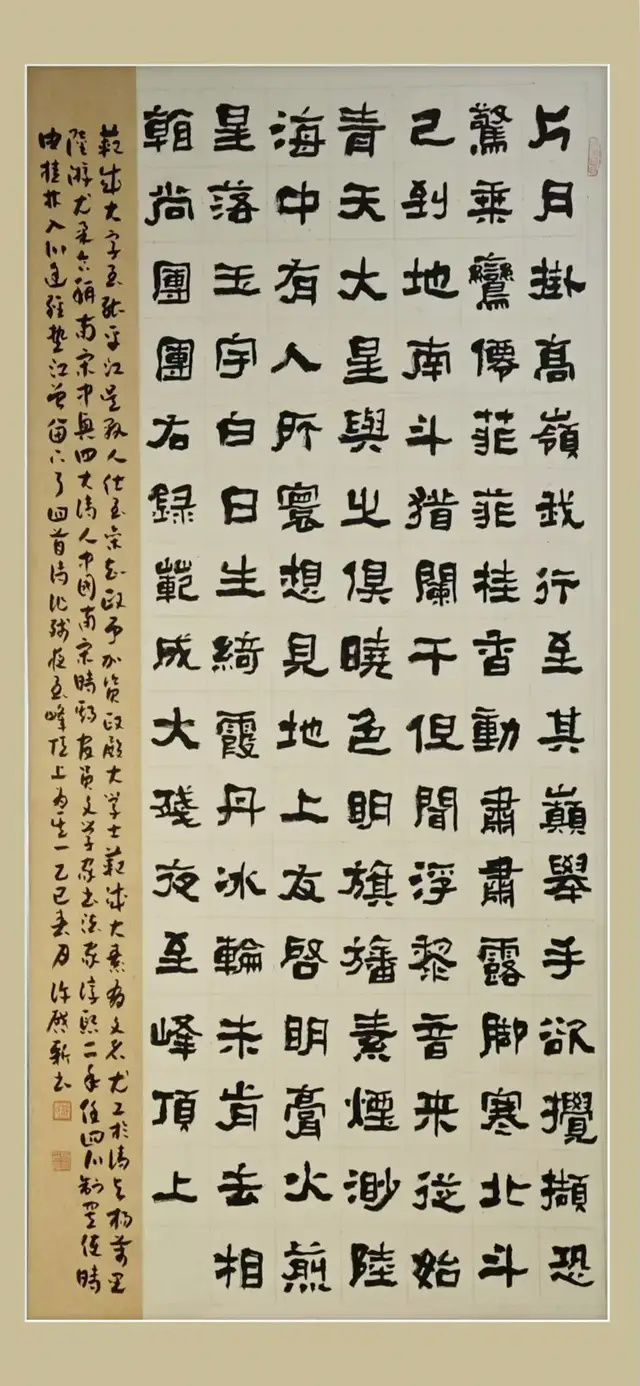 片月掛高嶺我行至其巔舉手欲攪擷恐
驚乘鸞僊菲菲桂香動肅肅露脚寒北斗
已到地南斗猶闌干但聞浮黎音来從始
青天大星與之俱曉色明旗旛素煙渺陸
海中有人所寰想見地上友啓明膏火煎
星落玉宇白日生綺霞丹冰輪未肯去相
翰尚團團右録範成大殘夜至峰頂上
範成大字至能平江吳縣人仕至知政事加資政殿大学士範成大素有文名尤工於詩與楊萬里
陸游尤袤合稱南宋中興四大詩人中國南宋時期官員文学家書法家淳熙二年任四川制置使時
由桂林入川途經墊江曾留下了四首詩此殘夜至峰頂上為其一乙巳春月許啟新書